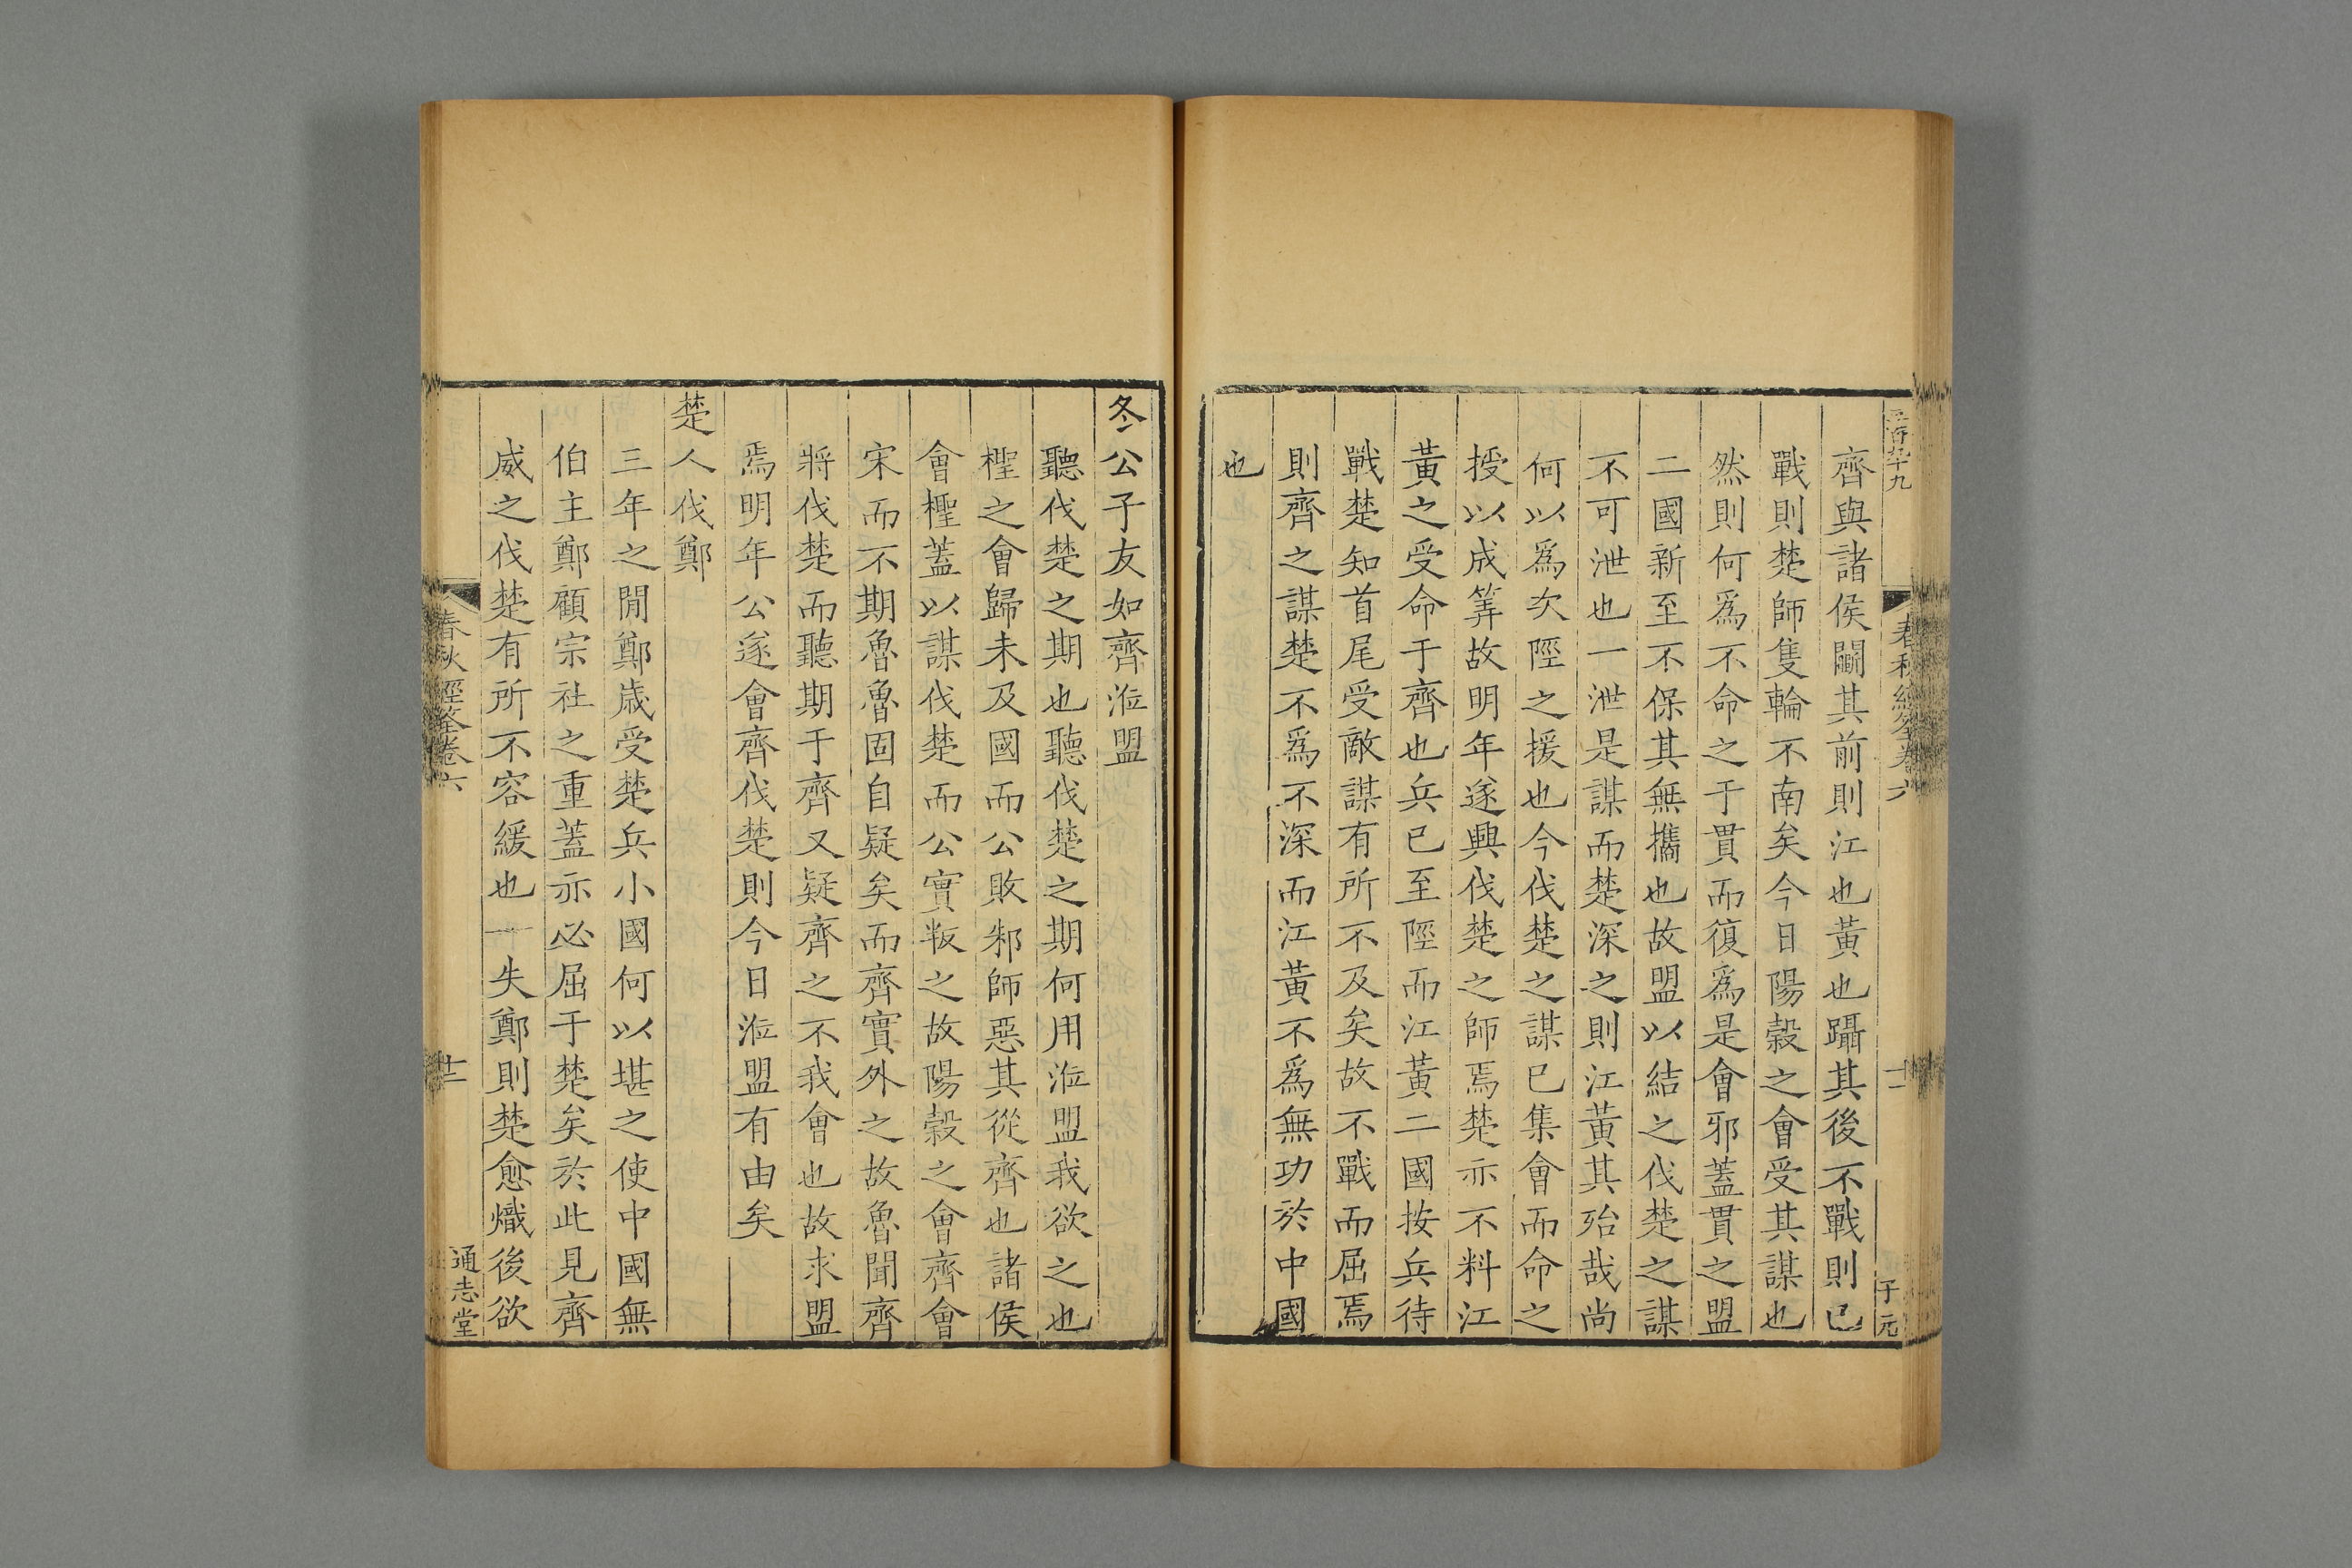 齊與諸侯鬭其前則江也黃也躡其後不戰則已
戰則楚師隻輪不南矣今日陽穀之會受其謀也
然則何爲不命之于貫而復爲是會邪蓋貫之盟
二國新至不保其無攜也故盟以結之伐楚之謀
不可泄也一泄是謀而楚深之則江黃其殆哉尚
何以爲次陘之援也今伐楚之謀已集會而命之
授以成筭故明年遂興伐楚之師焉楚亦不料江
黃之受命于齊也兵已至陘而江黃二國按兵待
戰楚知首尾受敵謀有所不及矣故不戰而屈焉
則齊之謀楚不爲不深而江黃不爲無功於中國
也
春秋經筌卷六
十一
子元
冬公子友如齊涖盟
聽伐楚之期也聽伐楚之期何用涖盟我欲之也
檉之會歸未及國而公敗邾師惡其從齊也諸侯
會檉蓋以謀伐楚而公實叛之故陽穀之會齊會
宋而不期魯魯固自疑矣而齊實外之故魯聞齊
將伐楚而聽期于齊又疑齊之不我會也故求盟
焉明年公遂會齊伐楚則今日涖盟有由矣
楚人伐鄭
三年之閒鄭歲受楚兵小國何以堪之使中國無
伯主鄭顧宗社之重蓋亦必屈于楚矣於此見齊
威之伐楚有所不容緩也一失鄭則楚愈熾後欲
春秋經筌卷六
十二
通志堂